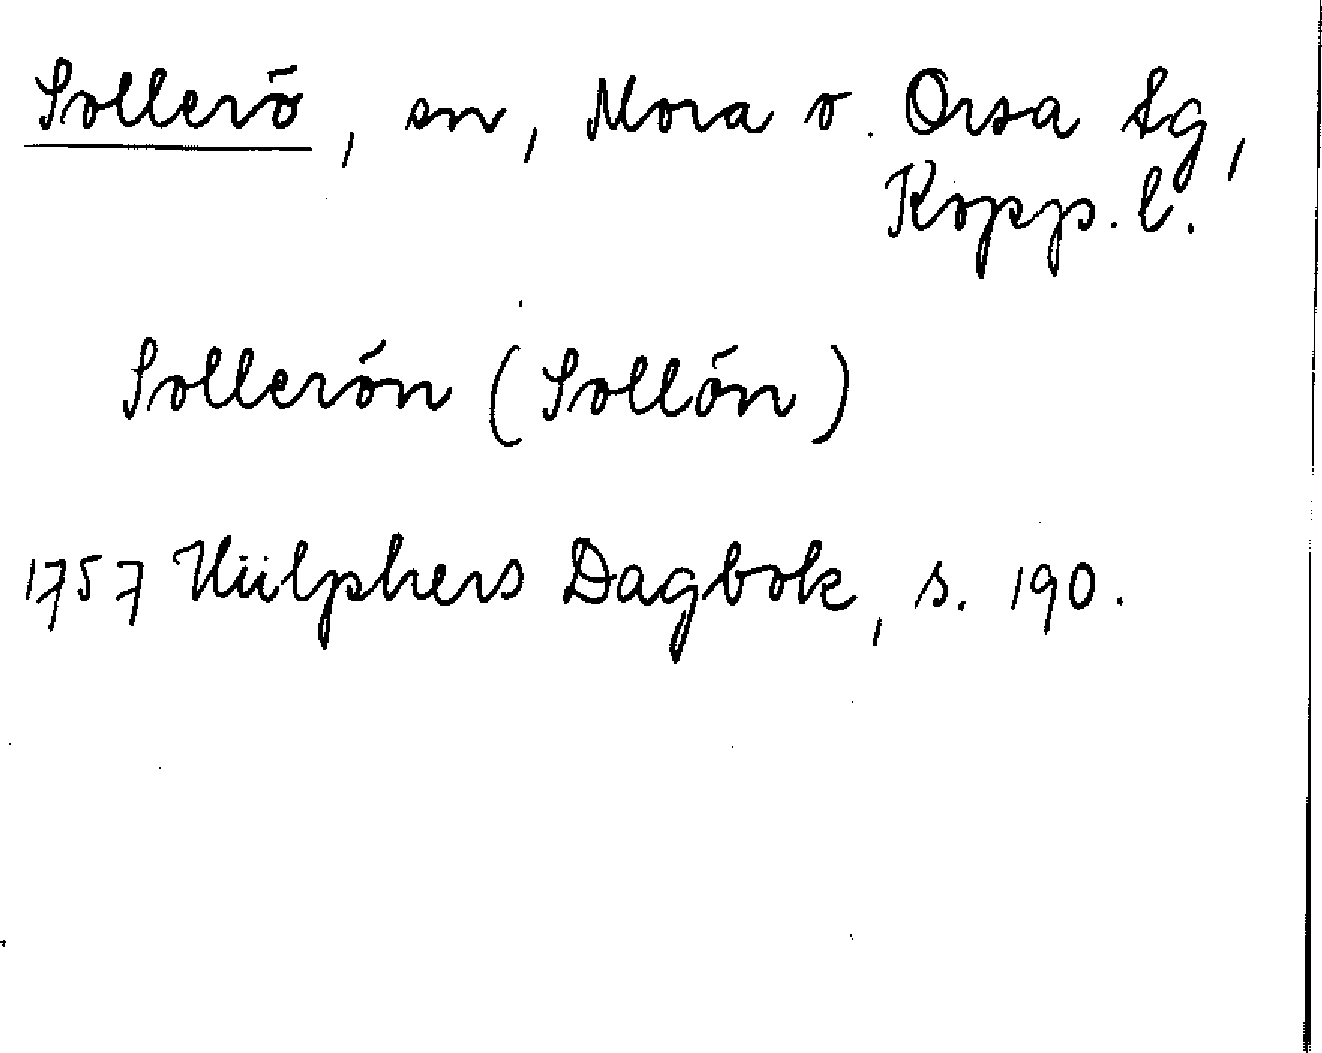 Sollerö, sn, Mora o. Orsa tg,
Kopp. l.
Sollerön (Sollön)
1757 Hülphers Dagbok, s. 190.